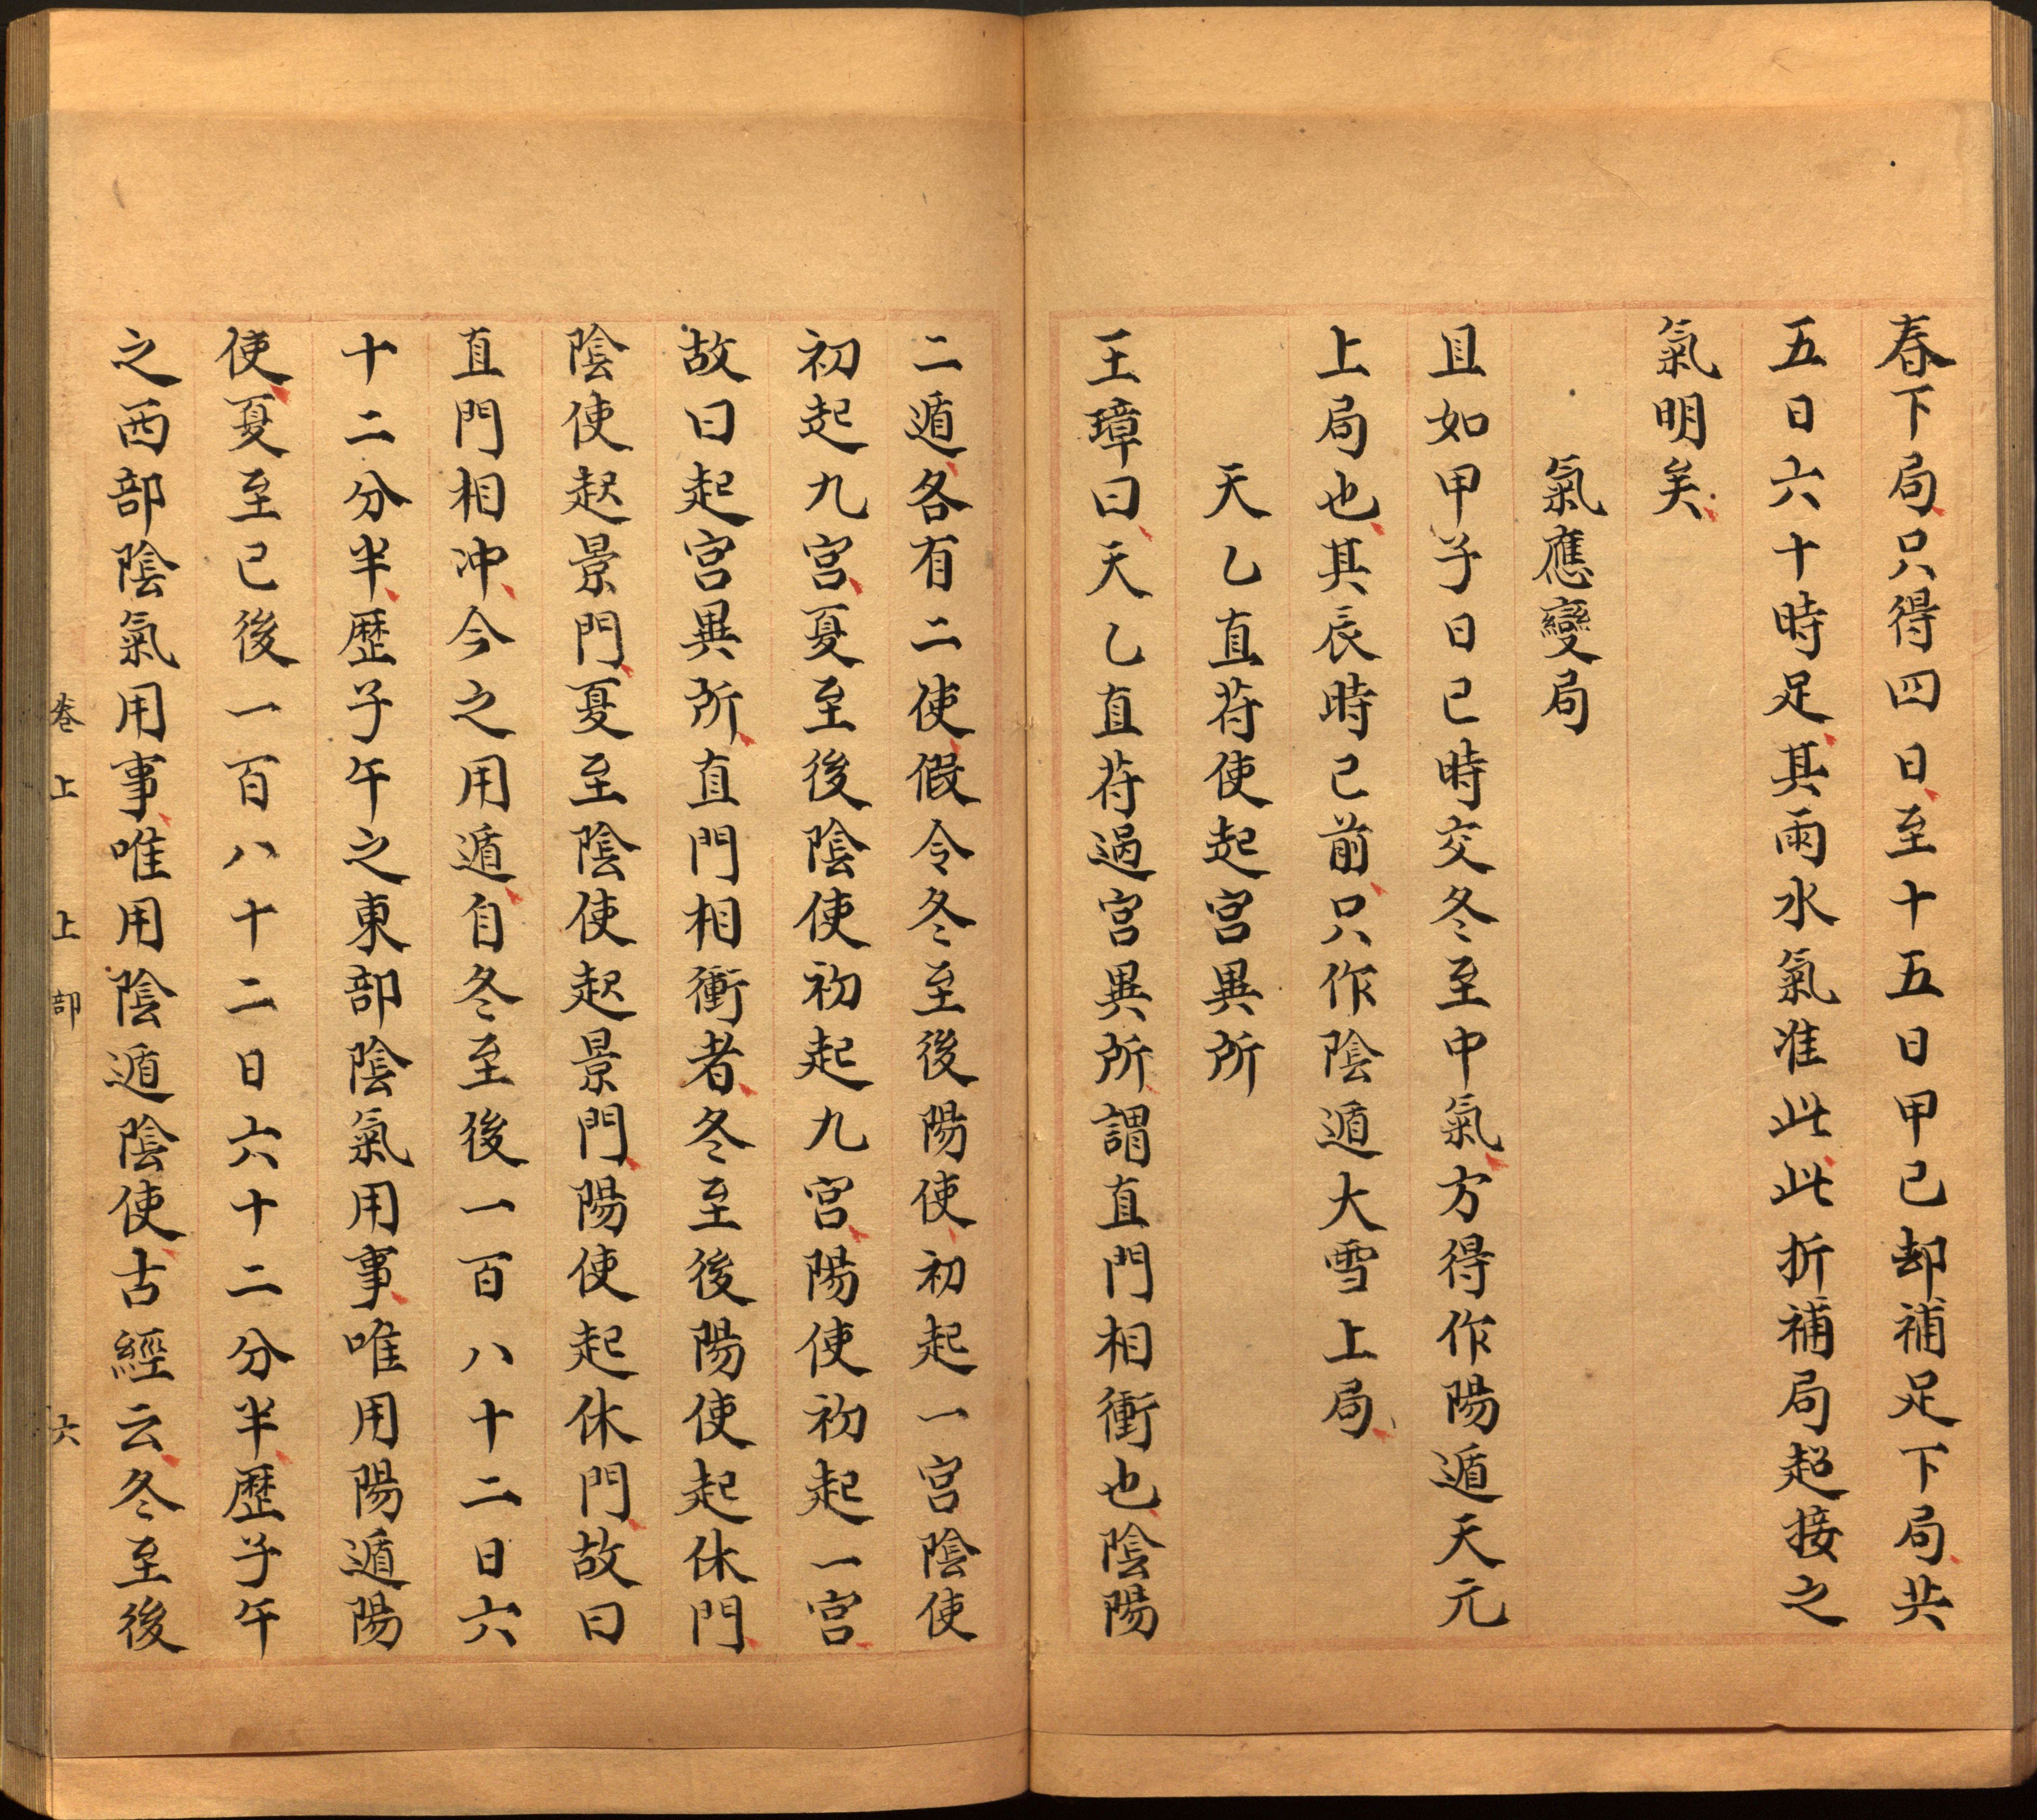 春下局只得四日至十五日甲己却補足下局共
五日六十時足其雨水氣准此此折補局超接之
氣明矣
氣應變局
且如甲子日巳時交冬至中氣方得作陽遁天元
上局也其辰時已前只作陰遁大雪上局
天乙直苻使起宮異所
王璋曰天乙直苻過宮異所謂直門相衝也陰陽
二遁各有二使假令冬至後陽使初起一宮陰使
初起九宮夏至後陰使初起九宮陽使初起一宮
故曰起宮異所直門相衝者冬至後陽使起休門
陰使起景門夏至陰使起景門陽使起休門故曰
直門相冲今之用遁自冬至後一百八十二日六
十二分半歷子午之東部陰氣用事唯用陽遁陽
使夏至已後一百八十二日六十二分半歷子午
之西部陰氣用事唯用陰遁陰使古經云冬至後
卷上 上部 六